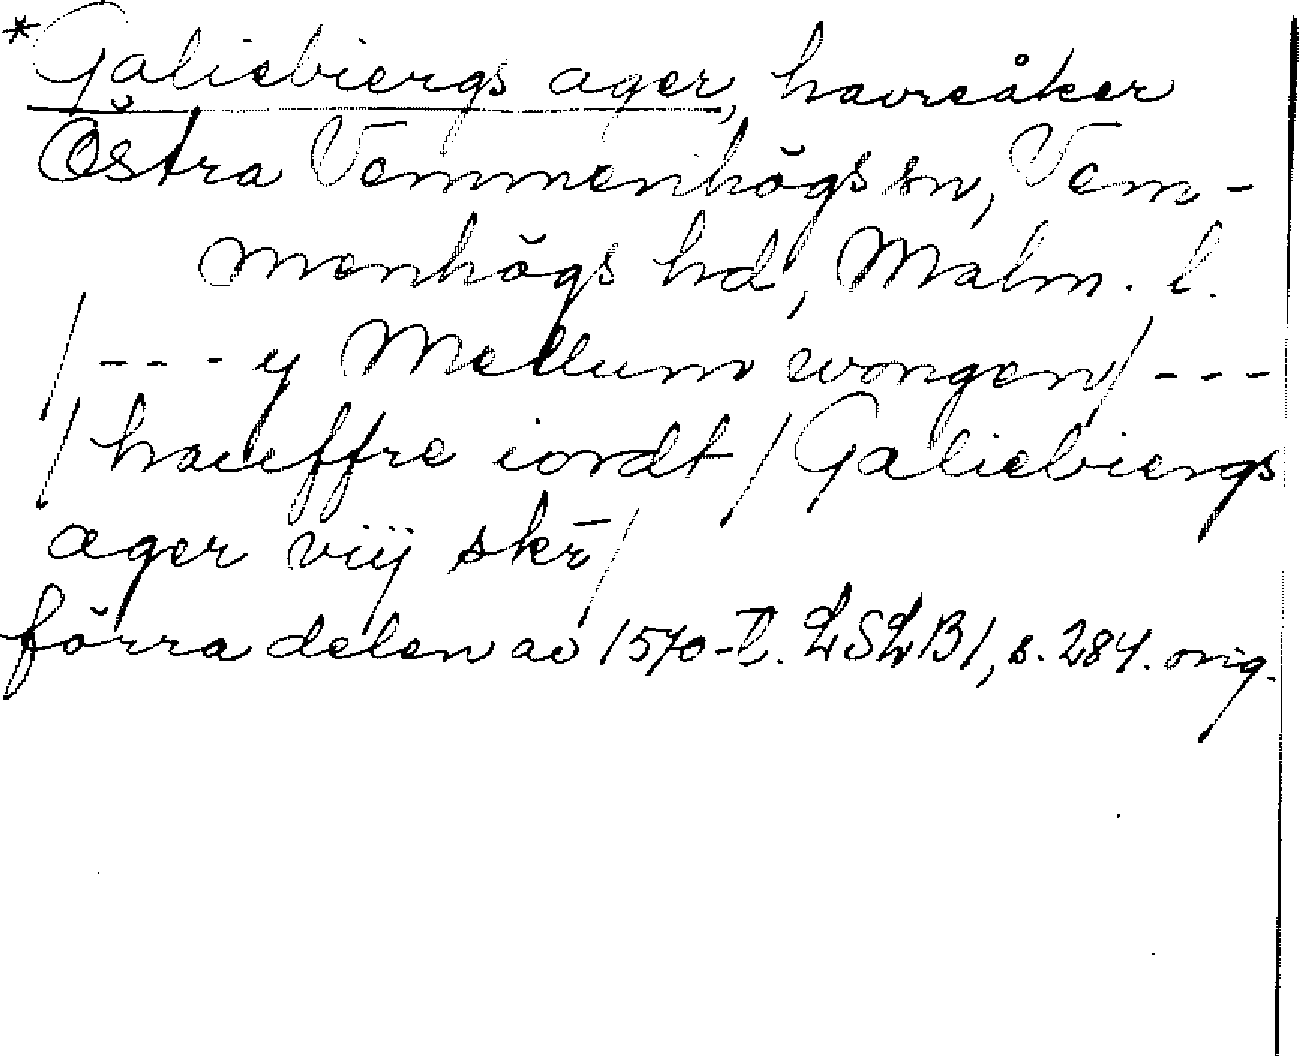 *Galiebiergs ager, havreåker
Östra Vemmenhögs sn, Vem-
menhögs hd, Malm. l.
/--- y Mellum wongen/---
/haueffre iordt/Galiebiergs
ager viij skr̄/
förra delen av 1570-t. LSLB1, s. 284. orig.